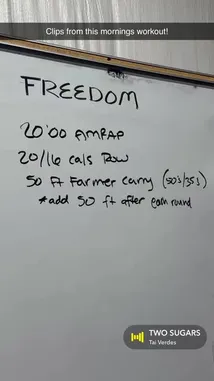 Clips from this mornings workout!
FREEDOM
20:00 AMRAP
20/16 cals Row
50 ft Farmer Carry (50's/35's)
*add 50 ft after each round
TWO SUGARS
Tai Verdes